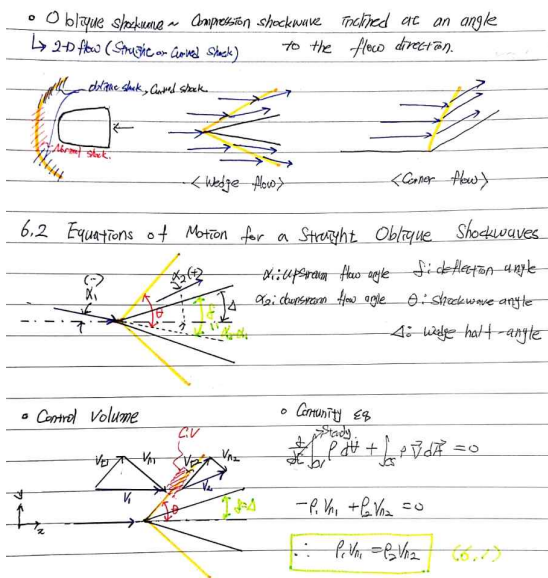 • Oblique shockwave ~ Compression shockwave inclined at an angle
↳ 2-D flow (Straight or Curved shock) to the flow direction.
oblique shock, Curved shock
Normal shock.
<Wedge flow>
<Corner flow>
6.2 Equations of Motion for a Straight Oblique Shockwaves
α₁: upstream flow angle δ: deflection angle
α₂: downstream flow angle θ: shockwave angle
Δ: wedge half-angle
(-)
α₁
α₂(+)
θ
δ
Δ
• Control Volume
C.V
Vn₁
Vn₂
V₁
V₂
θ
δ=Δ
y
x
• Continuity Eq
Steady
d/dt ∫cv ρ dV + ∫cs ρ V⃗ dA⃗ = 0
-ρ₁Vn₁ + ρ₂Vn₂ = 0
∴ ρ₁Vn₁ = ρ₂Vn₂ (6.1)